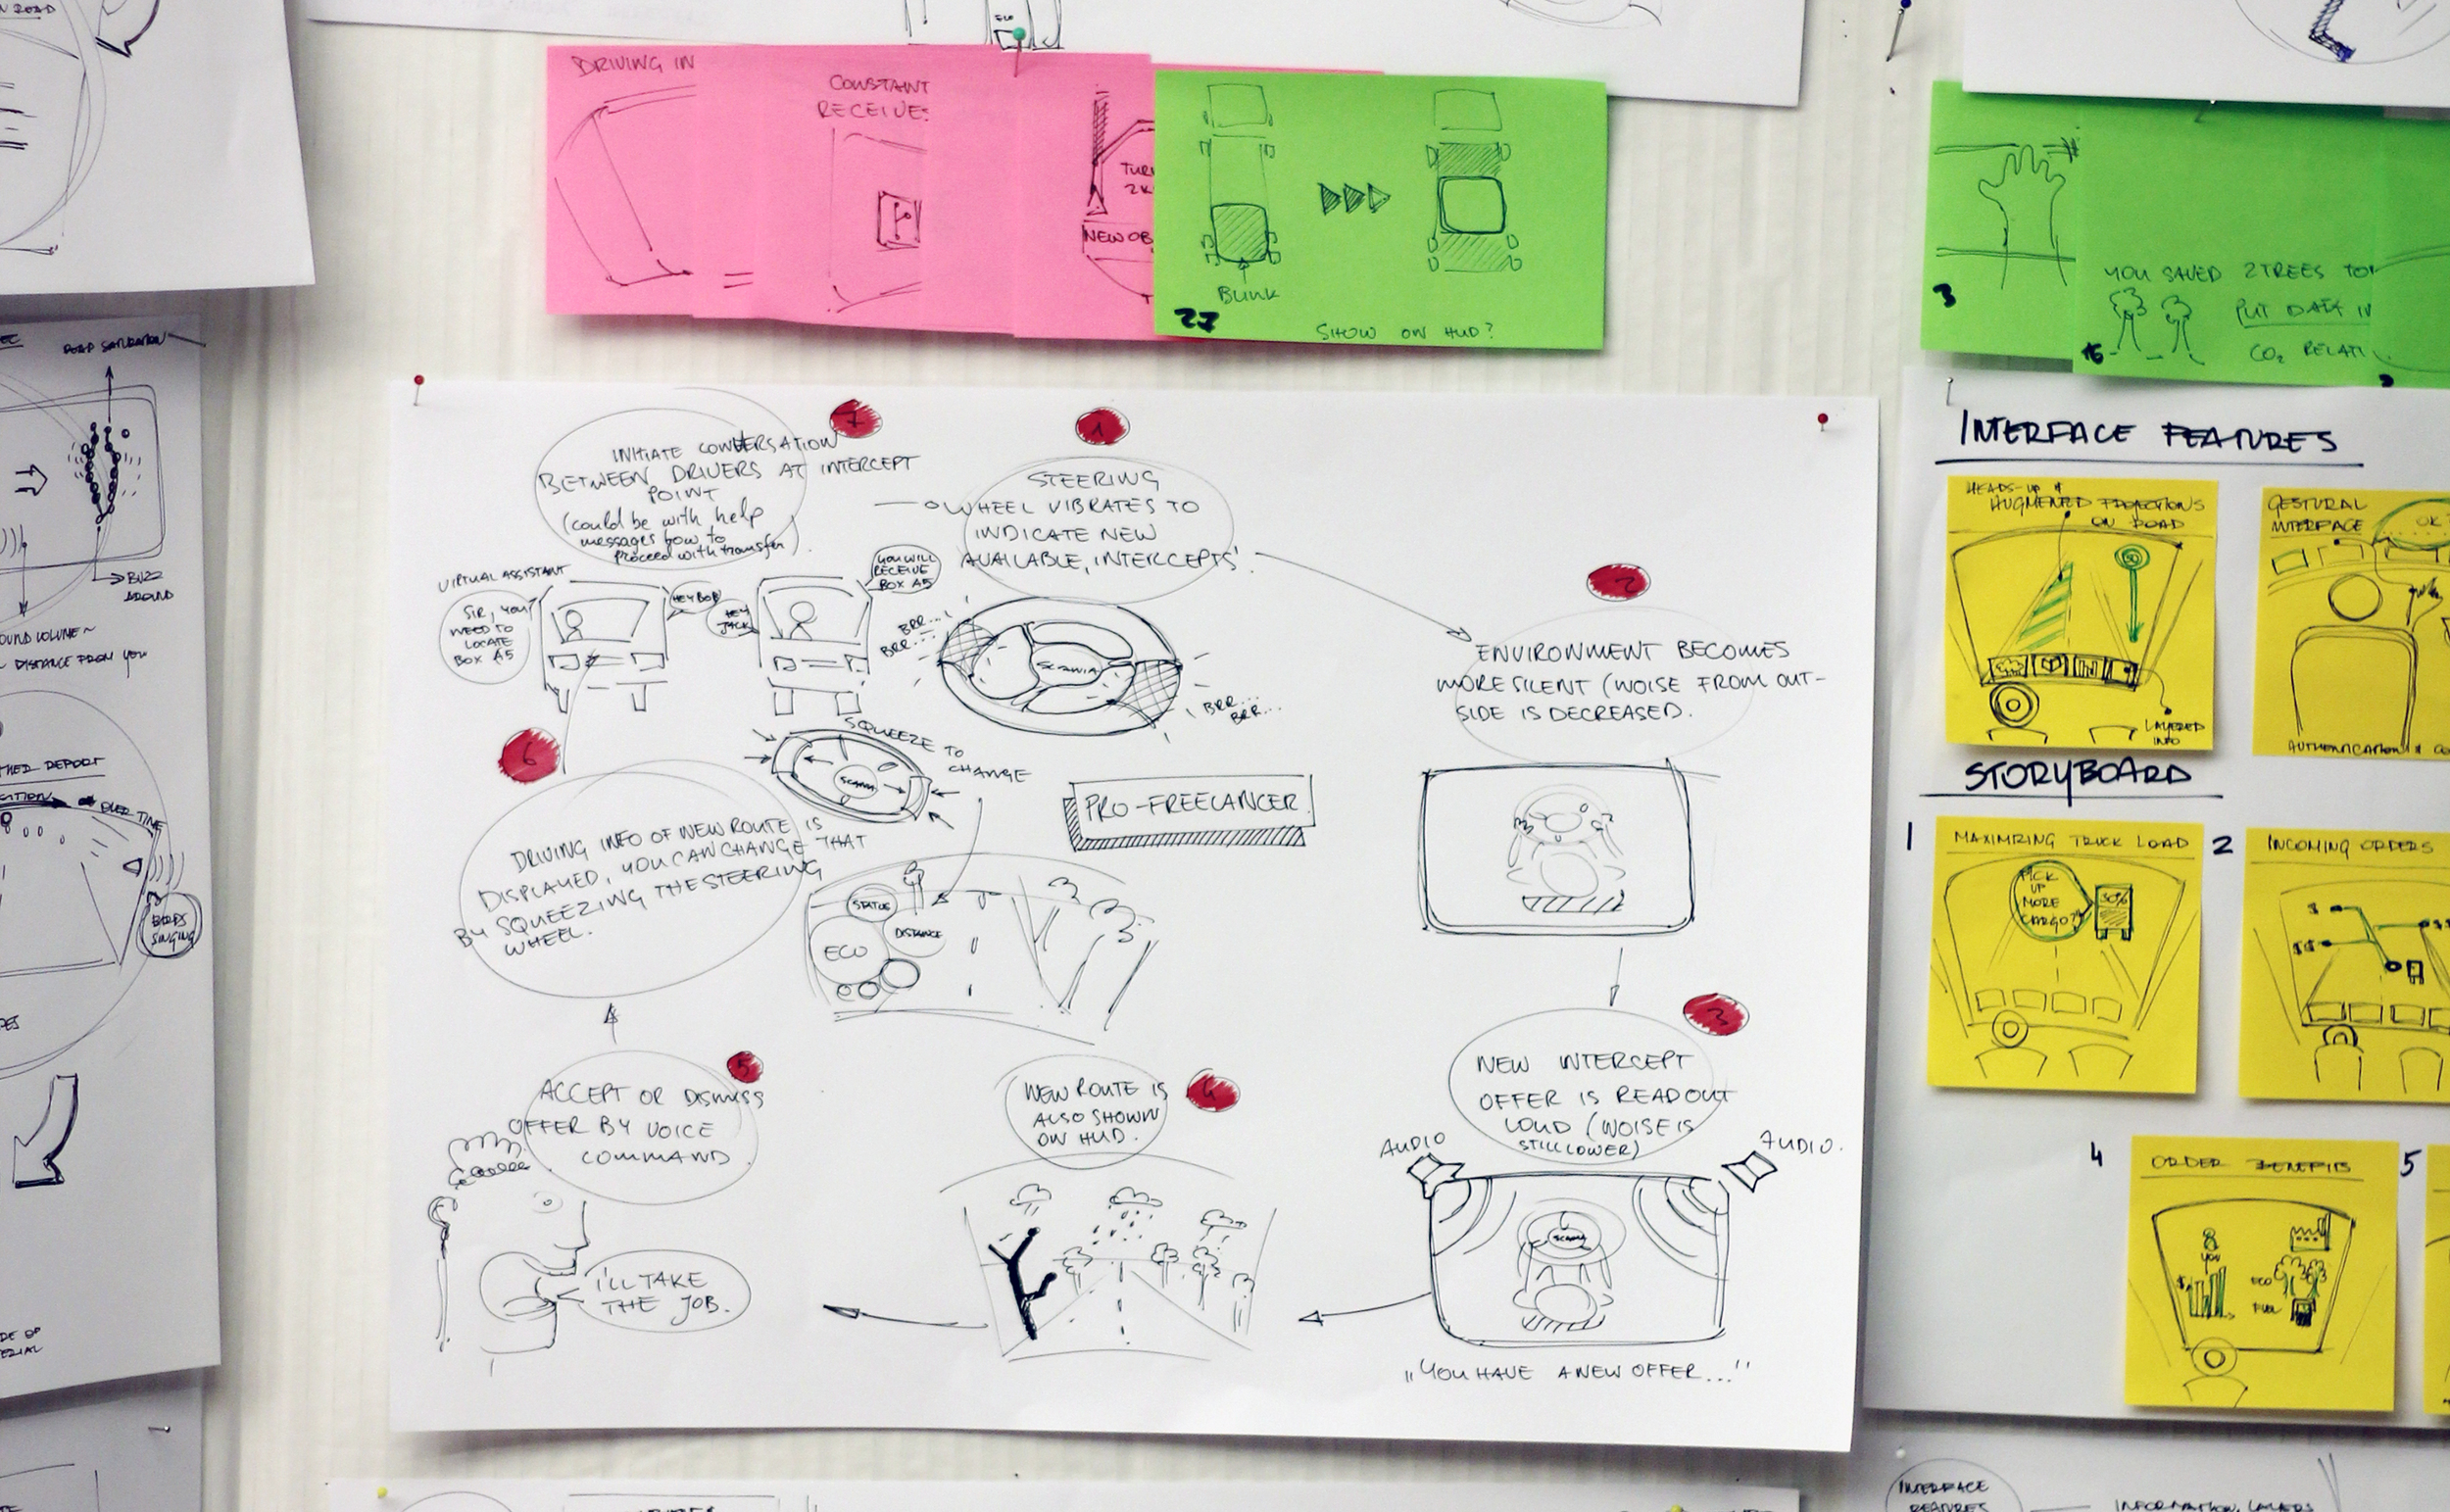 ECO
DRIVING IN
CONSTANT
RECEIVE:
TURN
2K
NEW OB
BLINK
27
SHOW ON HUD?
3
YOU SAVED 2 TREES TO
PUT DATA IN
CO2 RELATI
16
ROAD
ROAD SATURATION
BUZZ
AROUND
SOUND VOLUME ~
~ DISTANCE FROM YOU
OVER TIME
BIRDS
SINGING
7
INITIATE CONVERSATION
BETWEEN DRIVERS AT INTERCEPT
POINT
(could be with help
messages how to
proceed with transfer)
VIRTUAL ASSISTANT
SIR, YOU
NEED TO
LOCATE
BOX A5
HEY BOB
HEY
JACK
YOU WILL
RECEIVE
BOX A5
1
STEERING
WHEEL VIBRATES TO
INDICATE NEW
AVAILABLE, INTERCEPTS'.
BRR...!
BRR...
SCANIA
BRR...
BRR...
2
ENVIRONMENT BECOMES
MORE SILENT (NOISE FROM OUT-
SIDE IS DECREASED.
6
SQUEEZE TO
CHANGE
SCANIA
DRIVING INFO OF NEW ROUTE IS
DISPLAYED, YOU CAN CHANGE THAT
BY SQUEEZING THE STEERING
WHEEL.
PRO-FREELANCER
STATUS
ECO
DISTANCE
3
NEW INTERCEPT
OFFER IS READ OUT
LOUD (NOISE IS
STILL LOWER)
AUDIO
AUDIO.
SCANIA
„YOU HAVE A NEW OFFER..."
4
NEW ROUTE IS
ALSO SHOWN
ON HUD.
5
ACCEPT OR DISMISS
OFFER BY VOICE
COMMAND.
I'LL TAKE
THE JOB.
INTERFACE FEATURES
HEADS-UP &
AUGMENTED PROJECTIONS
ON ROAD
50
LAYERED
INFO
GESTURAL
INTERFACE
OK
AUTHENTICATION &
STORYBOARD
1
MAXIMIZING TRUCK LOAD
PICK
UP
MORE
CARGO?
30%
2
INCOMING ORDERS
$
$$
4
ORDER BENEFITS
YOU
$
ECO
FUEL
5
INTERFACE
FEATURES
INFORMATION LAYERS